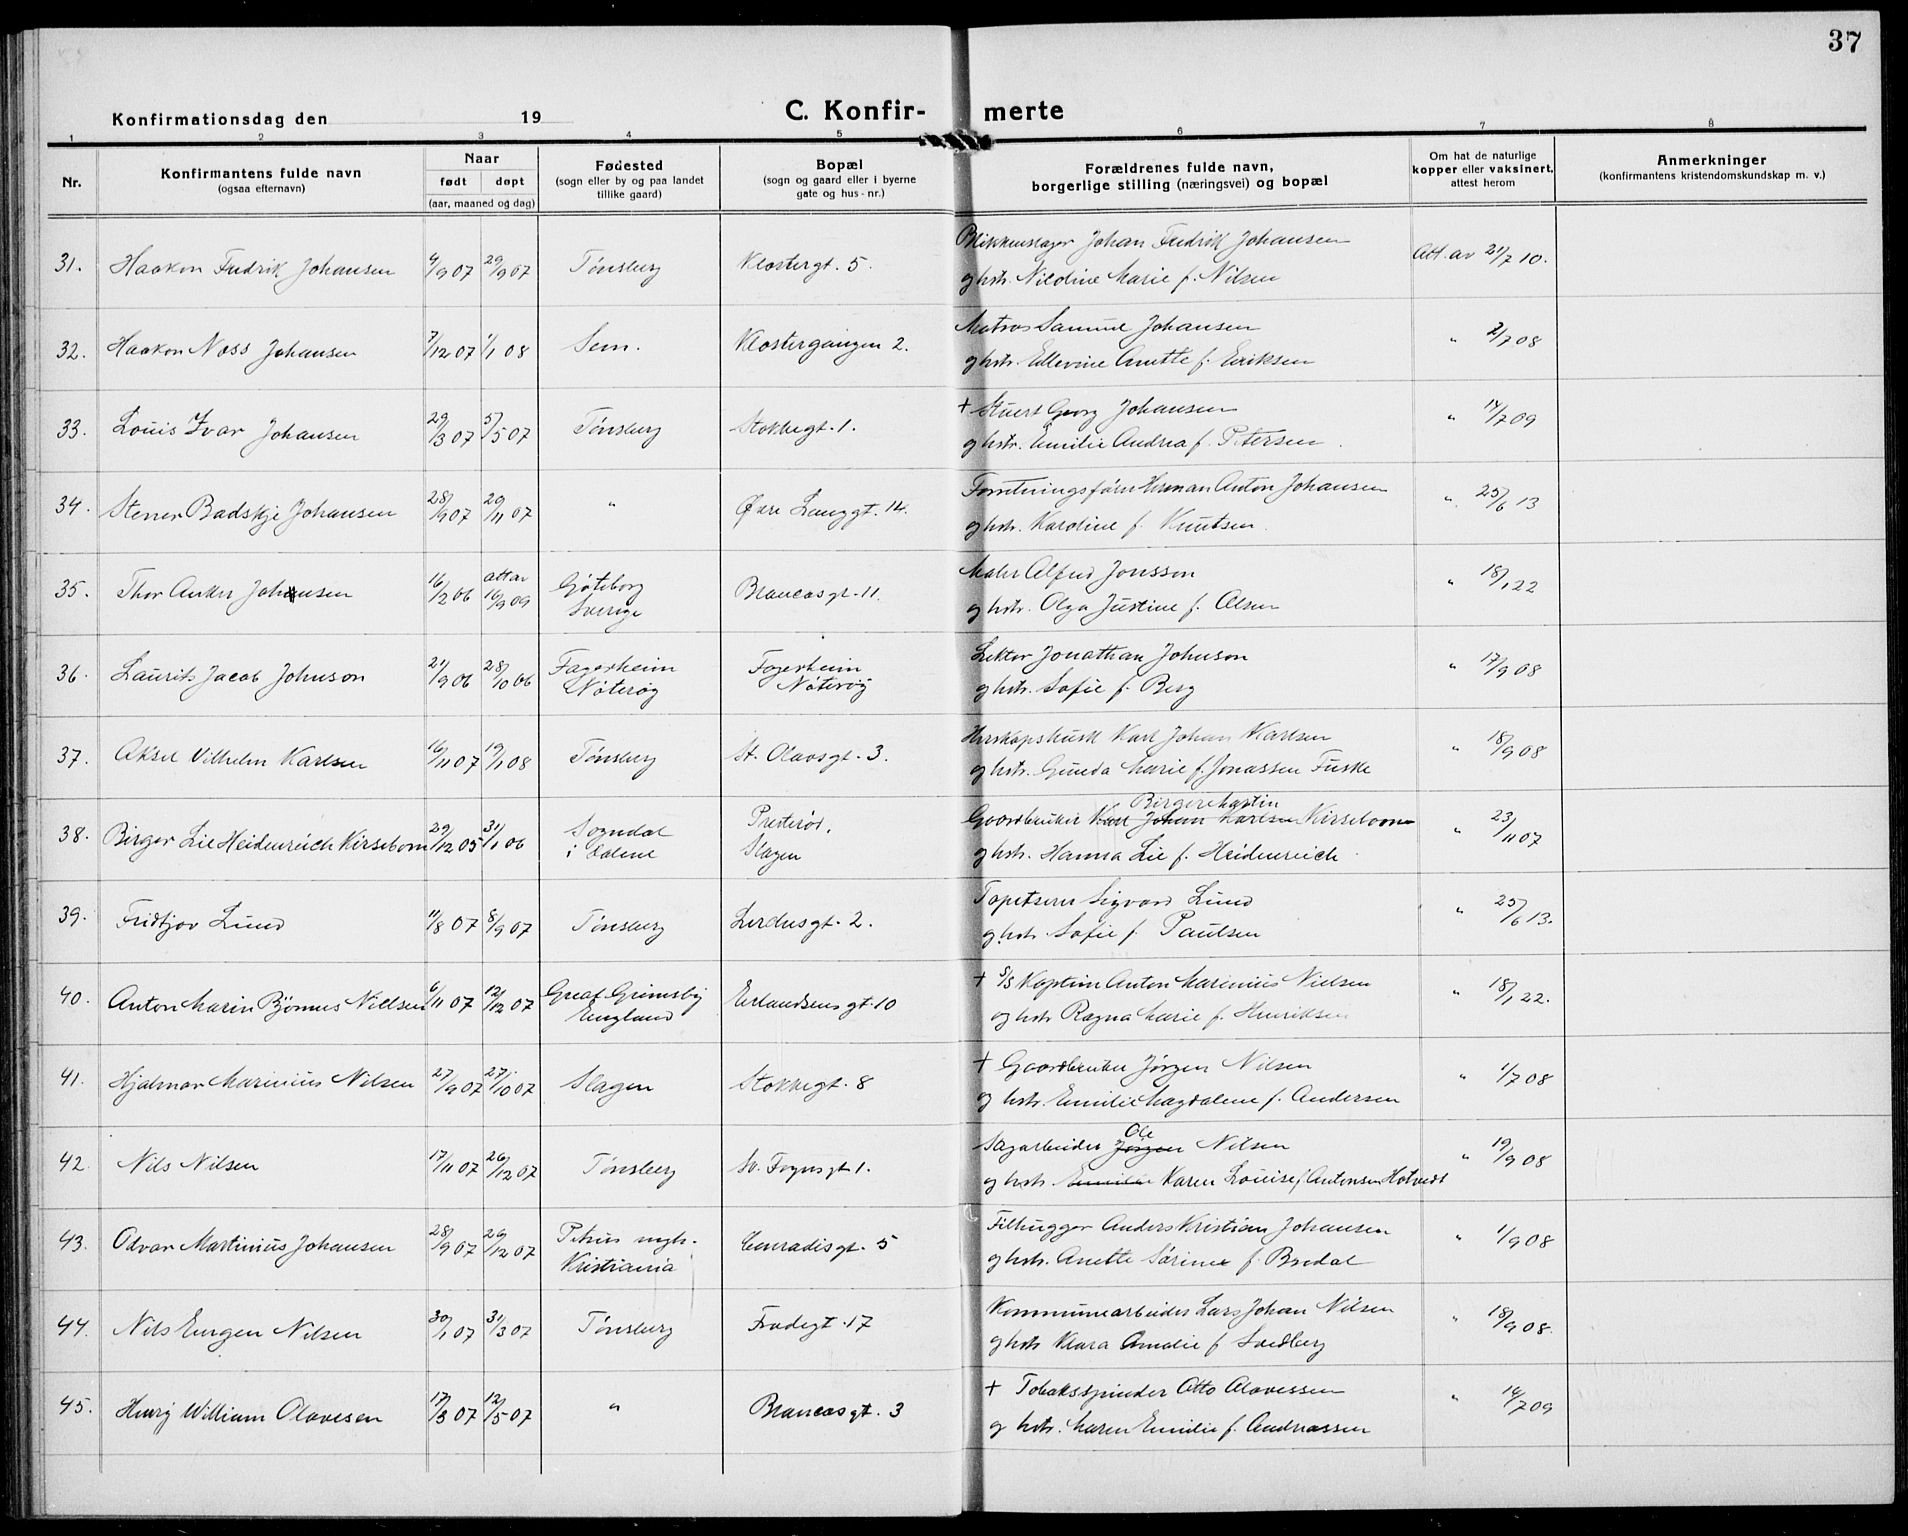 37
Konfirmationsdag den 19
C. Konfir- merte
1 2 3 4 5 6 7 8
Nr.
Konfirmantens fulde navn
(ogsaa efternavn)
Naar
født døpt
(aar, maaned og dag)
Fødested
(sogn eller by og paa landet
tillike gaard)
Bopæl
(sogn og gaard eller i byerne
gate og hus-nr.)
Forældrenes fulde navn,
borgerlige stilling (næringsvei) og bopæl
Om hat de naturlige
kopper eller vaksinert,
attest herom
Anmerkninger
(konfirmantens kristendomskundskap m. v.)
Blikkenslager Johan Fredrik Johansen
31. Haakon Fredrik Johansen 4/9 07 29/9 07 Tønsberg Klostergt. 5. Att. av 21/7 10.
og hstr. Nildine Marie f. Nilsen
Matros Samuel Johansen
32. Haakon Næss Johansen 7/12 07 1/1 08 Sem. Klostergangen 2. " 2/7 08
og hstr. Edlevine Anette f. Eriksen
+ Stuert Georg Johansen
33. Louis Ivar Johansen 29/3 07 5/5 07 Tønsberg Stokkegt. 1. " 14/7 09
og hstr. Emilie Andrea f. Petersen.
Forretningsfører Herman Anton Johansen
34. Stener Badskje Johansen 28/9 07 29/11 07 " Øvre Langgt. 14. " 25/6 13
og hstr. Karoline f. Knutsen.
Maler Alfred Jonsson
35. Thor Anker Johnsen 16/2 06 att av 16/9 09 Gøteborg Sverige Brancasgt. 11. " 18/1 22
og hstr. Olga Justine f. Olsen
Lektor Jonathan Johnson
36. Laurits Jacob Johnson 21/9 06 28/10 06 Fagerheim Nøterøy Fagerheim Nøterøy " 17/9 08
og hstr. Sofie f. Berg
Herskapskusk Karl Johan Karlsen
37. Aksel Vilhelm Karlsen 16/11 07 19/1 08 Tønsberg St. Olavsgt. 3. " 18/9 08
og hstr. Gunda Marie f. Jonassen Fuske
Birger Martin
Gaardbruker Karl Johan Karlsen Kirsebom
38. Birger Lie Heidenreich Kirsebom 29/12 05 31/1 06 Sogndal i Dalene Presterød, Slagen " 23/11 07
og hstr. Hanna Lie f. Heidenreich
Tapetserer Sigvard Lund
39. Fridtjov Lund 11/8 07 8/9 07 Tønsberg Lerdusgt. 2. " 25/6 13.
og hstr. Sofie f. Paulsen
+ S/S Kaptein Anton Marinius Nielsen
40. Anton Marin Bjønnes Nielsen 6/11 07 12/12 07 Great Grimsby England Erlandsensgt. 10 " 18/1 22.
og hstr Ragna Marie f. Henriksen
+ Gaardbruker Jørgen Nilsen
41. Hjalmar Marinius Nilsen 27/9 07 27/10 07 Slagen Stokkegt. 8 " 1/7 08
og hstr. Emilie Magdalene f. Andersen
Ole
Sagarbeider Jørgen Nilsen
42. Nils Nilsen 17/11 07 26/12 07 Tønsberg Sv. Foynsgt 1. " 19/9 08
og hstr. Emilie Karen Louise f. Antonsen Hotvedt
Filhugger Anders Kristian Johansen
43. Odvar Martinius Johansen 28/9 07 29/12 07 Petrus mgh. Kristiania Conradisgt. 5 " 1/9 08
og hstr. Anette Sørine f. Bredal
Kommunearbeider Lars Johan Nilsen
44. Nils Eugen Nilsen 30/1 07 31/3 07 Tønsberg Frodegt. 17 " 18/9 08.
og hstr Klara Amalie f Svedberg
+ Tobakksspinder Otto Olavessen
45. Henry William Olavesen 17/3 07 12/5 07 " Brancasgt. 3 " 14/7 09
og hstr. Maren Emilie f. Andreassen